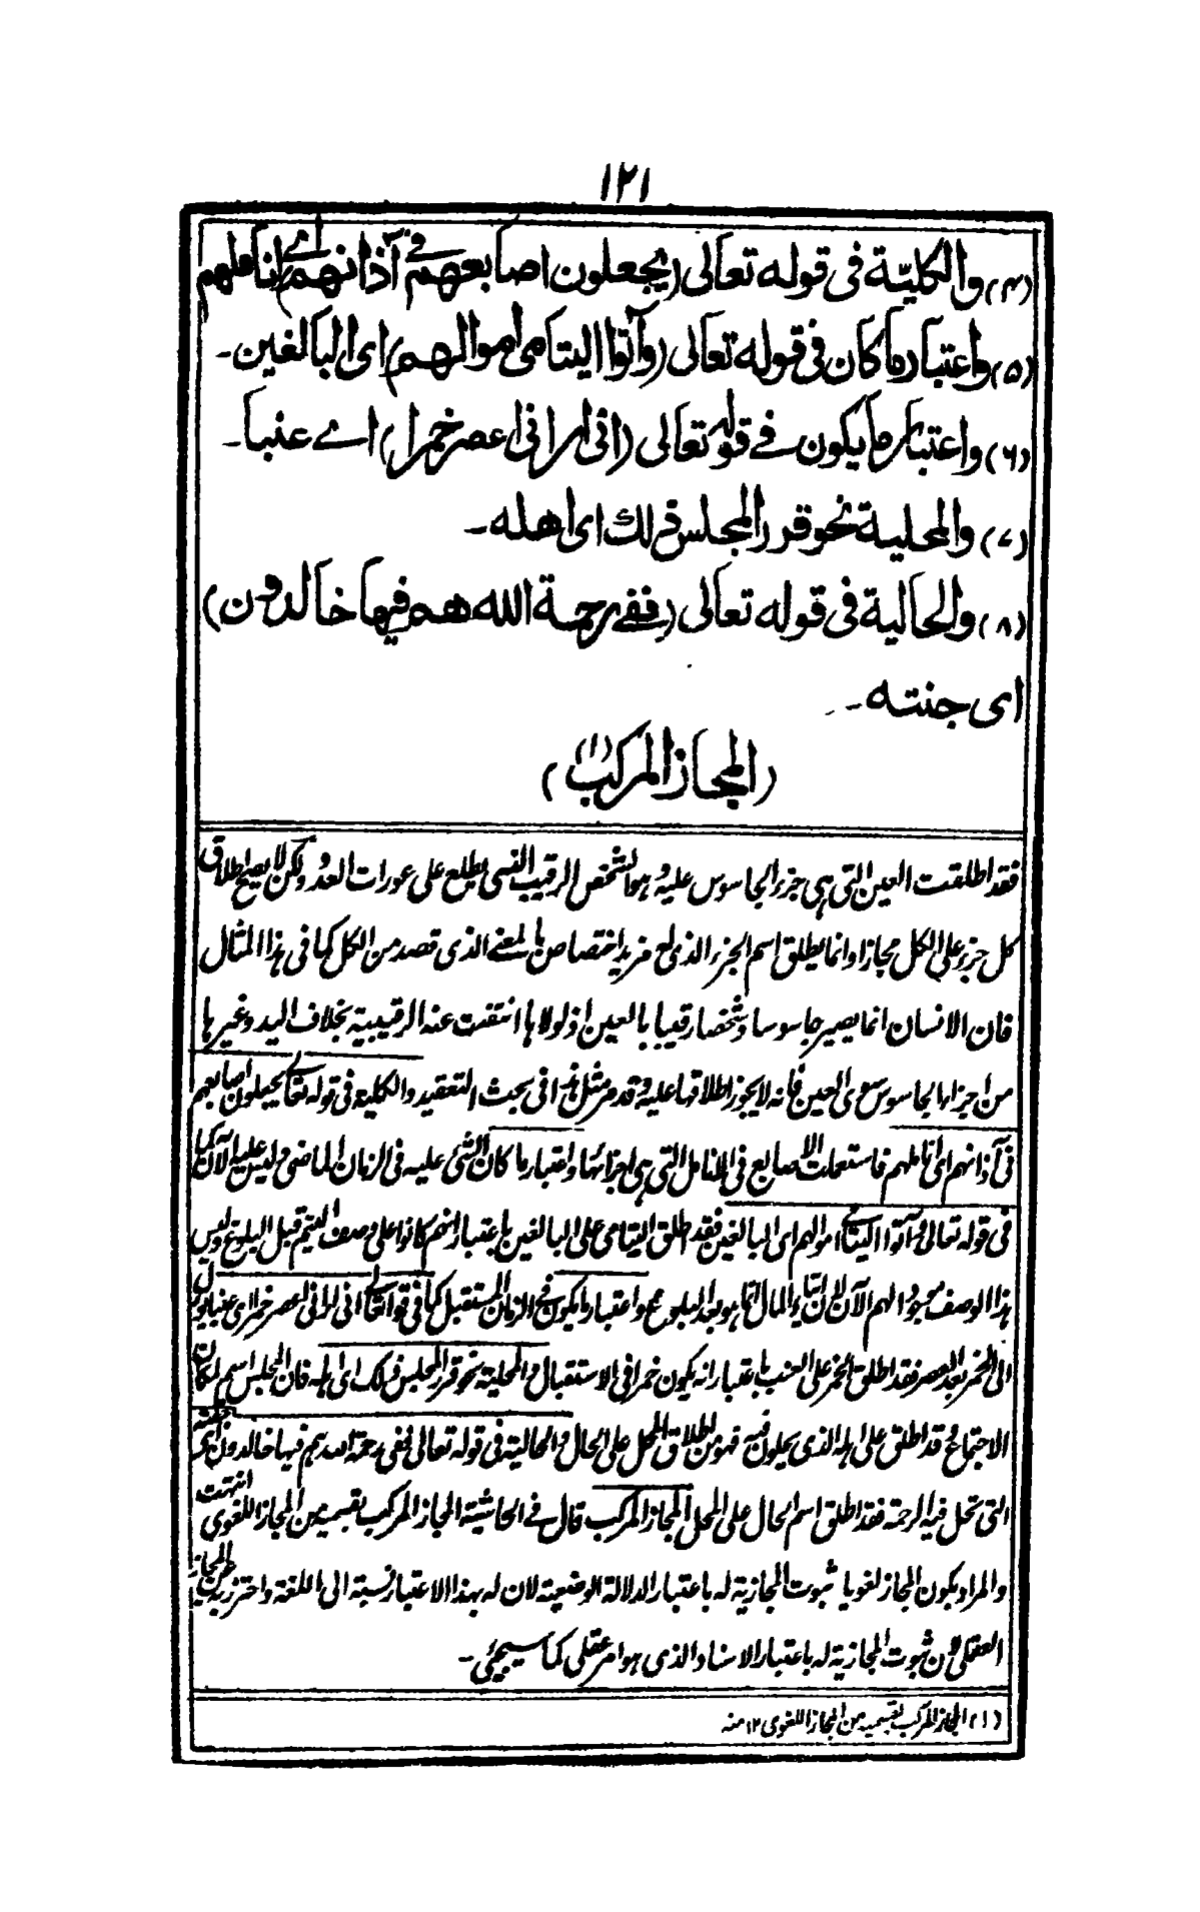 ١٢١
(٤) والكليّة فى قوله تعالى (يجعلون اصابعهم فى آذانهم) اى اناملهم
(۵) واعتبار ما كان فى قوله تعالى (وآتوا اليتامى اموالهم) اى البالغين۔
(٦) واعتبار ما يكون فے قوله تعالى (انى ارانى اعصر خمرا) اے عنبا۔
(٧) والمحلية نحو قرر المجلس ذلك اى اهله۔
(٨) والحالية فى قوله تعالى (ففے رحمة الله هم فيها خالدون)
اى جنته۔
(المجاز المركب) (١)
فقد اطلقت العين التى هى جزء الجاسوس عليه وهو الشخص الرقيب الذى يطلع على عورات العدو ولكن لا يصح اطلاق
كل جزء على الكل مجازا وانما يطلق اسم الجزء الذى له مزيد اختصاص بالمعنے الذى قصد من الكل كما فى هذا المثال
فان الانسان انما يصير جاسوسا وشخصا رقيبا بالعين اذ لولاها انتفت عنه الرقيبية بخلاف اليد وغيرها
من اجزاء الجاسوس سوى العين فانه لا يجوز اطلاقها عليه وقد مر مثل هذا فى بحث التعقيد والكلية فى قوله تعالے يجعلون اصابعهم
فى آذانهم اى اناملهم فاستعملت الاصابع فى الانامل التى هى اجزائها واعتبار ما كان الشئ عليه فى الزمان الماضى وليس عليه الآن كما
فى قوله تعالى وآتوا اليتامے اموالهم اى البالغين فقد اطلق اليتامى على البالغين باعتبار انهم كانوا على وصف اليتيم قبل البلوغ وليس
هذا الوصف موجودا لهم الآن لان ايتاء المال انما هو بعد البلوغ واعتبار ما يكون فے الزمان المستقبل كما فى قوله تعالے انى ارانى اعصر خمرا اى عنبا يؤول
الى الخمر بعد العصر فقد اطلق الخمر على العنب باعتبار انه يكون خمرا فى الاستقبال والمحلية نحو قرر المجلس ذلك اى اهله فان المجلس اسم لمكان
الاجتماع وقد اطلق على اهله الذى يحلون فيه فهو من اطلاق المحل على الحال والحالية فى قوله تعالى ففى رحمة الله هم فيها خالدون اى جنته
التى تحل فيه الرحمة فقد اطلق اسم الحال على المحل المجاز المركب قال فے الحاشية المجاز المركب بقسميه من المجاز اللغوى انتهت
والمراد بكون المجاز لغويا ثبوت المجازية له باعتبار الدلالة الوضعية لان له بهذا الاعتبار نسبة الى اللغة واحترز به عن المجاز
العقلى لان ثبوت المجازية له باعتبار الاسناد الذى هو امر عقلى كما سيجيئ۔
(١) المجاز المركب بقسميه من المجاز اللغوى ١٢ منه